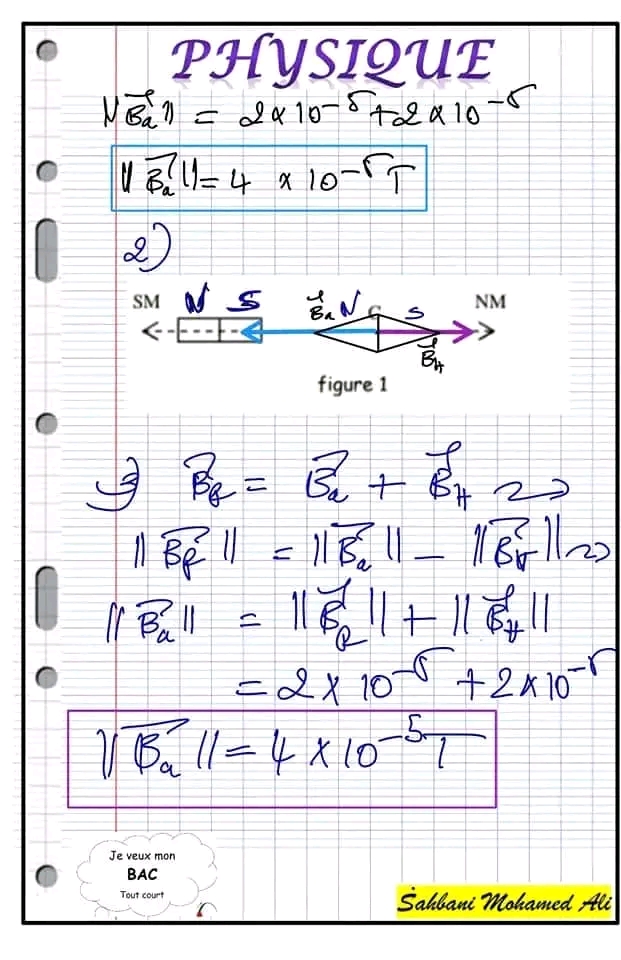 PHYSIQUE
||B⃗a|| = 2×10⁻⁵+2×10⁻⁵
||B⃗a|| = 4 × 10⁻⁵ T
2)
SM N S B⃗a N C S NM
B⃗H
figure 1
3) B⃗R = B⃗a + B⃗H ⇒
||B⃗R|| = ||B⃗a|| − ||B⃗H|| ⇒
||B⃗a|| = ||B⃗R|| + ||B⃗H||
= 2 × 10⁻⁵ + 2×10⁻⁵
||B⃗a|| = 4 × 10⁻⁵ T
Je veux mon
BAC
Tout court
Sahbani Mohamed Ali